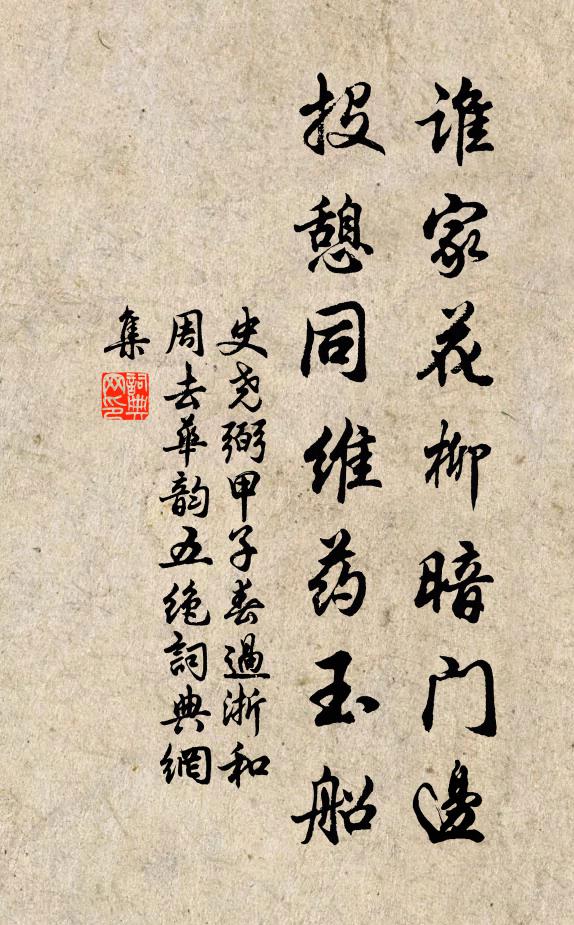 谁家花柳暗门邊
投憩同维药玉船
史尧弼甲子春過浙和
周去華韵五绝詞典網
集
詞典網印